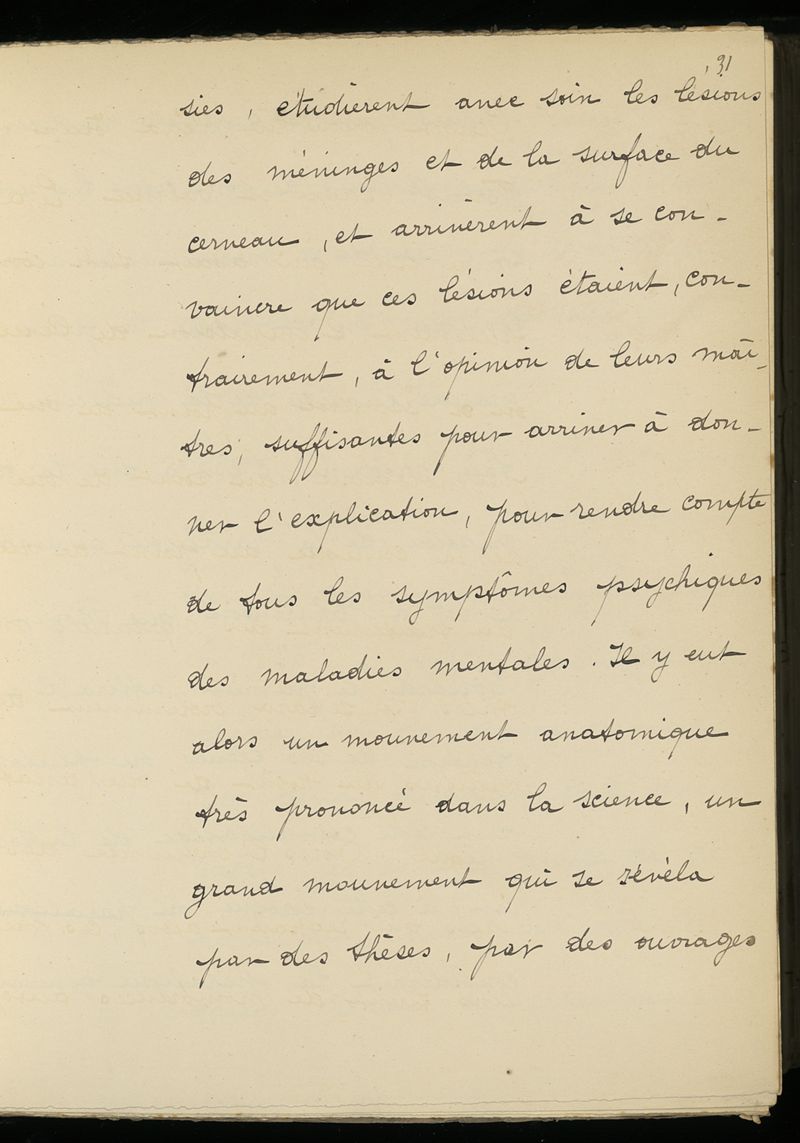 31
sies, étudièrent avec soin les lésions
des méninges et de la surface du
cerveau, et arrivèrent à se con-
vaincre que ces lésions étaient, con-
trairement, à l'opinion de leurs maî-
tres, suffisantes pour arriver à don-
ner l'explication, pour rendre compte
de tous les symptômes psychiques
des maladies mentales. Il y eut
alors un mouvement anatomique
très prononcé dans la science, un
grand mouvement qui se révèla
par des thèses, par des ouvrages